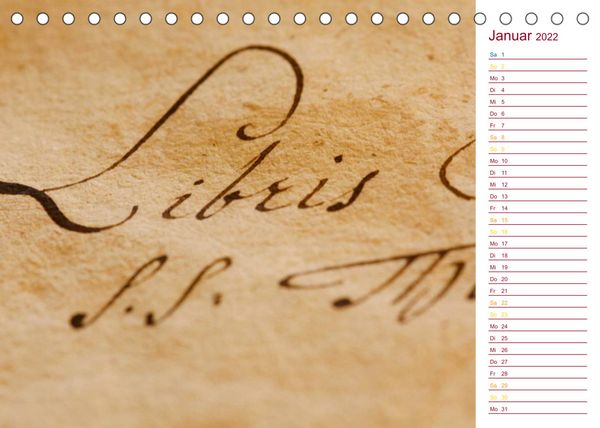 Libris
s.s. Th
Januar 2022
Sa 1
So 2
Mo 3
Di 4
Mi 5
Do 6
Fr 7
Sa 8
So 9
Mo 10
Di 11
Mi 12
Do 13
Fr 14
Sa 15
So 16
Mo 17
Di 18
Mi 19
Do 20
Fr 21
Sa 22
So 23
Mo 24
Di 25
Mi 26
Do 27
Fr 28
Sa 29
So 30
Mo 31